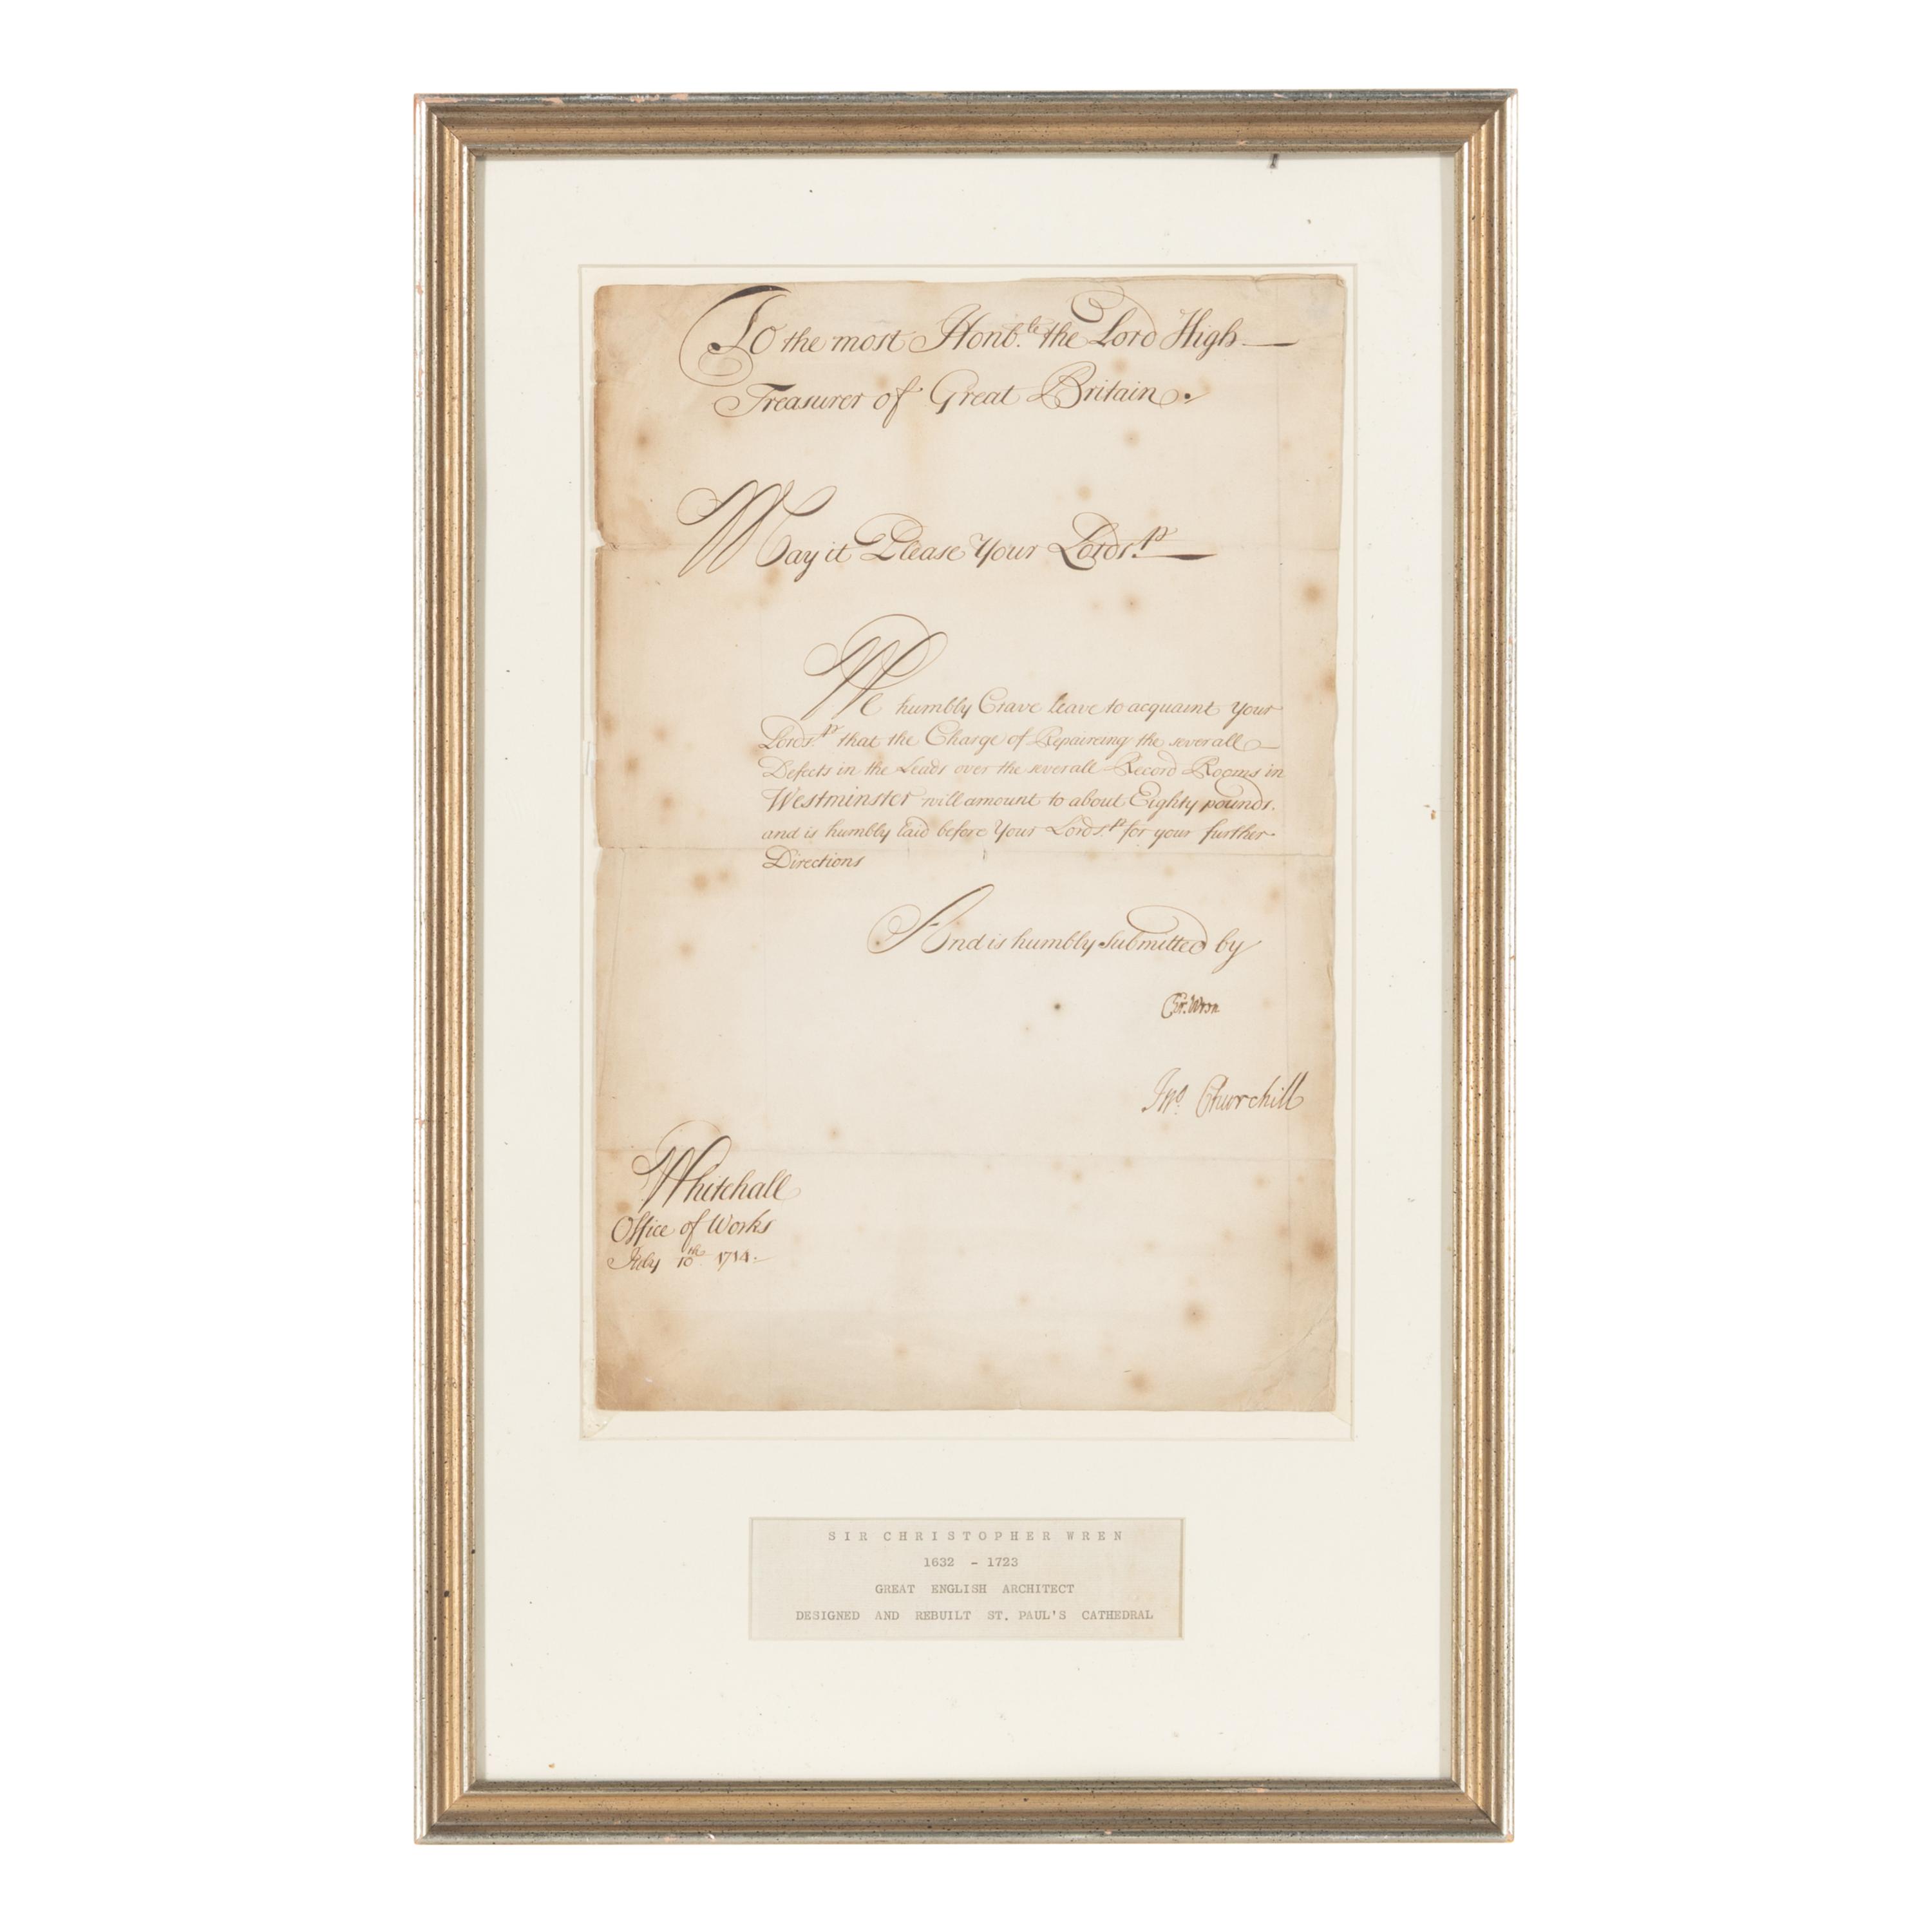 To the most Honb.le the Lord High
Treasurer of Great Britain.
May it Please Your Lords.p
We humbly Crave leave to acquaint Your
Lords.p that the Charge of Repaireing the severall
Defects in the Leads over the severall Record Rooms in
Westminster will amount to about Eighty pounds.
and is humbly laid before Your Lords.p for your further
Directions
And is humbly Submitted by
Chr. Wren
Jno. Churchill
Whitehall
Office of Works
July 10th 1714.
SIR CHRISTOPHER WREN
1632 - 1723
GREAT ENGLISH ARCHITECT
DESIGNED AND REBUILT ST. PAUL'S CATHEDRAL